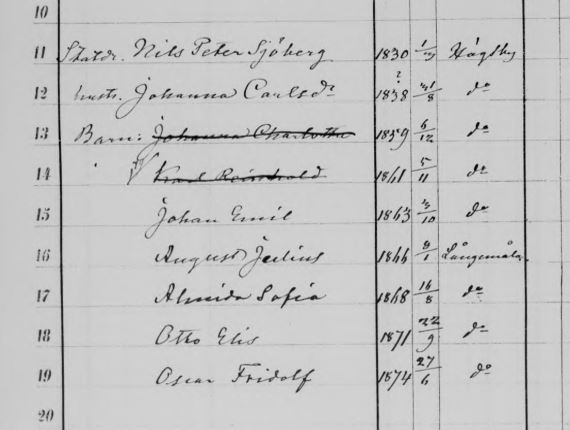 10
11 Statdr. Nils Peter Sjöberg 1830 1/3 Högsby
12 hustr. Johanna Carlsdr ? 1838 31/8 do
13 Barn: Johanna Charlotta 1859 6/12 do
14 Karl Reinhold 1861 5/11 do
15 Johan Emil 1863 3/10 do
16 August Julius 1866 8/1 Långemåla
17 Almida Sofia 1868 16/8 do
18 Otto Elis 1871 22/9 do
19 Oscar Fridolf 1874 27/6 do
20